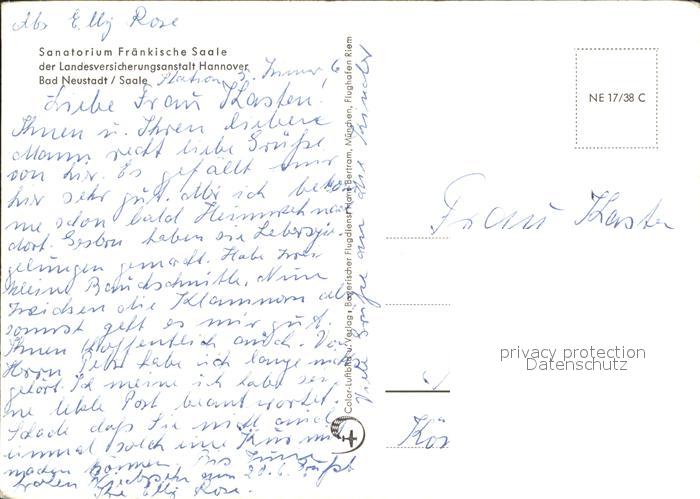 Abs Elly Rose
Sanatorium Fränkische Saale
der Landesversicherungsanstalt Hannover
Bad Neustadt / Saale
Station 3. Zimmer 6
Liebe Frau Kasten!
Ihnen u. Ihren lieben
Mann recht liebe Grüße
von hir. Es gefällt mir
hir sehr gut. Abr ich bekom
me schon bald Heimweh nach
dort. Gestern haben sie Leberspie-
gelungen gemacht. Habe zwei
kleine Bauchschnitte. Nun
die Klammern ab
sonnst geht es mir gut.
Ihnen hoffentlich auch. Von
Herrn habe ich lange nichts
gehört. Ich meine ich habe sei
ne letzte Post beantwortet.
Schade daß Sie nicht auch
einmal solch eine Kur mit
machen können. Bis zum
20.6. Grüßt
Ihre Elly Rose.
Viele Grüße an die Kinder
Color-Luftbild-Verlag • Bayerischer Flugdienst Hans Bertram, München, Flughafen Riem
NE 17/38 C
Frau Kasten
privacy protection
Datenschutz
Kös